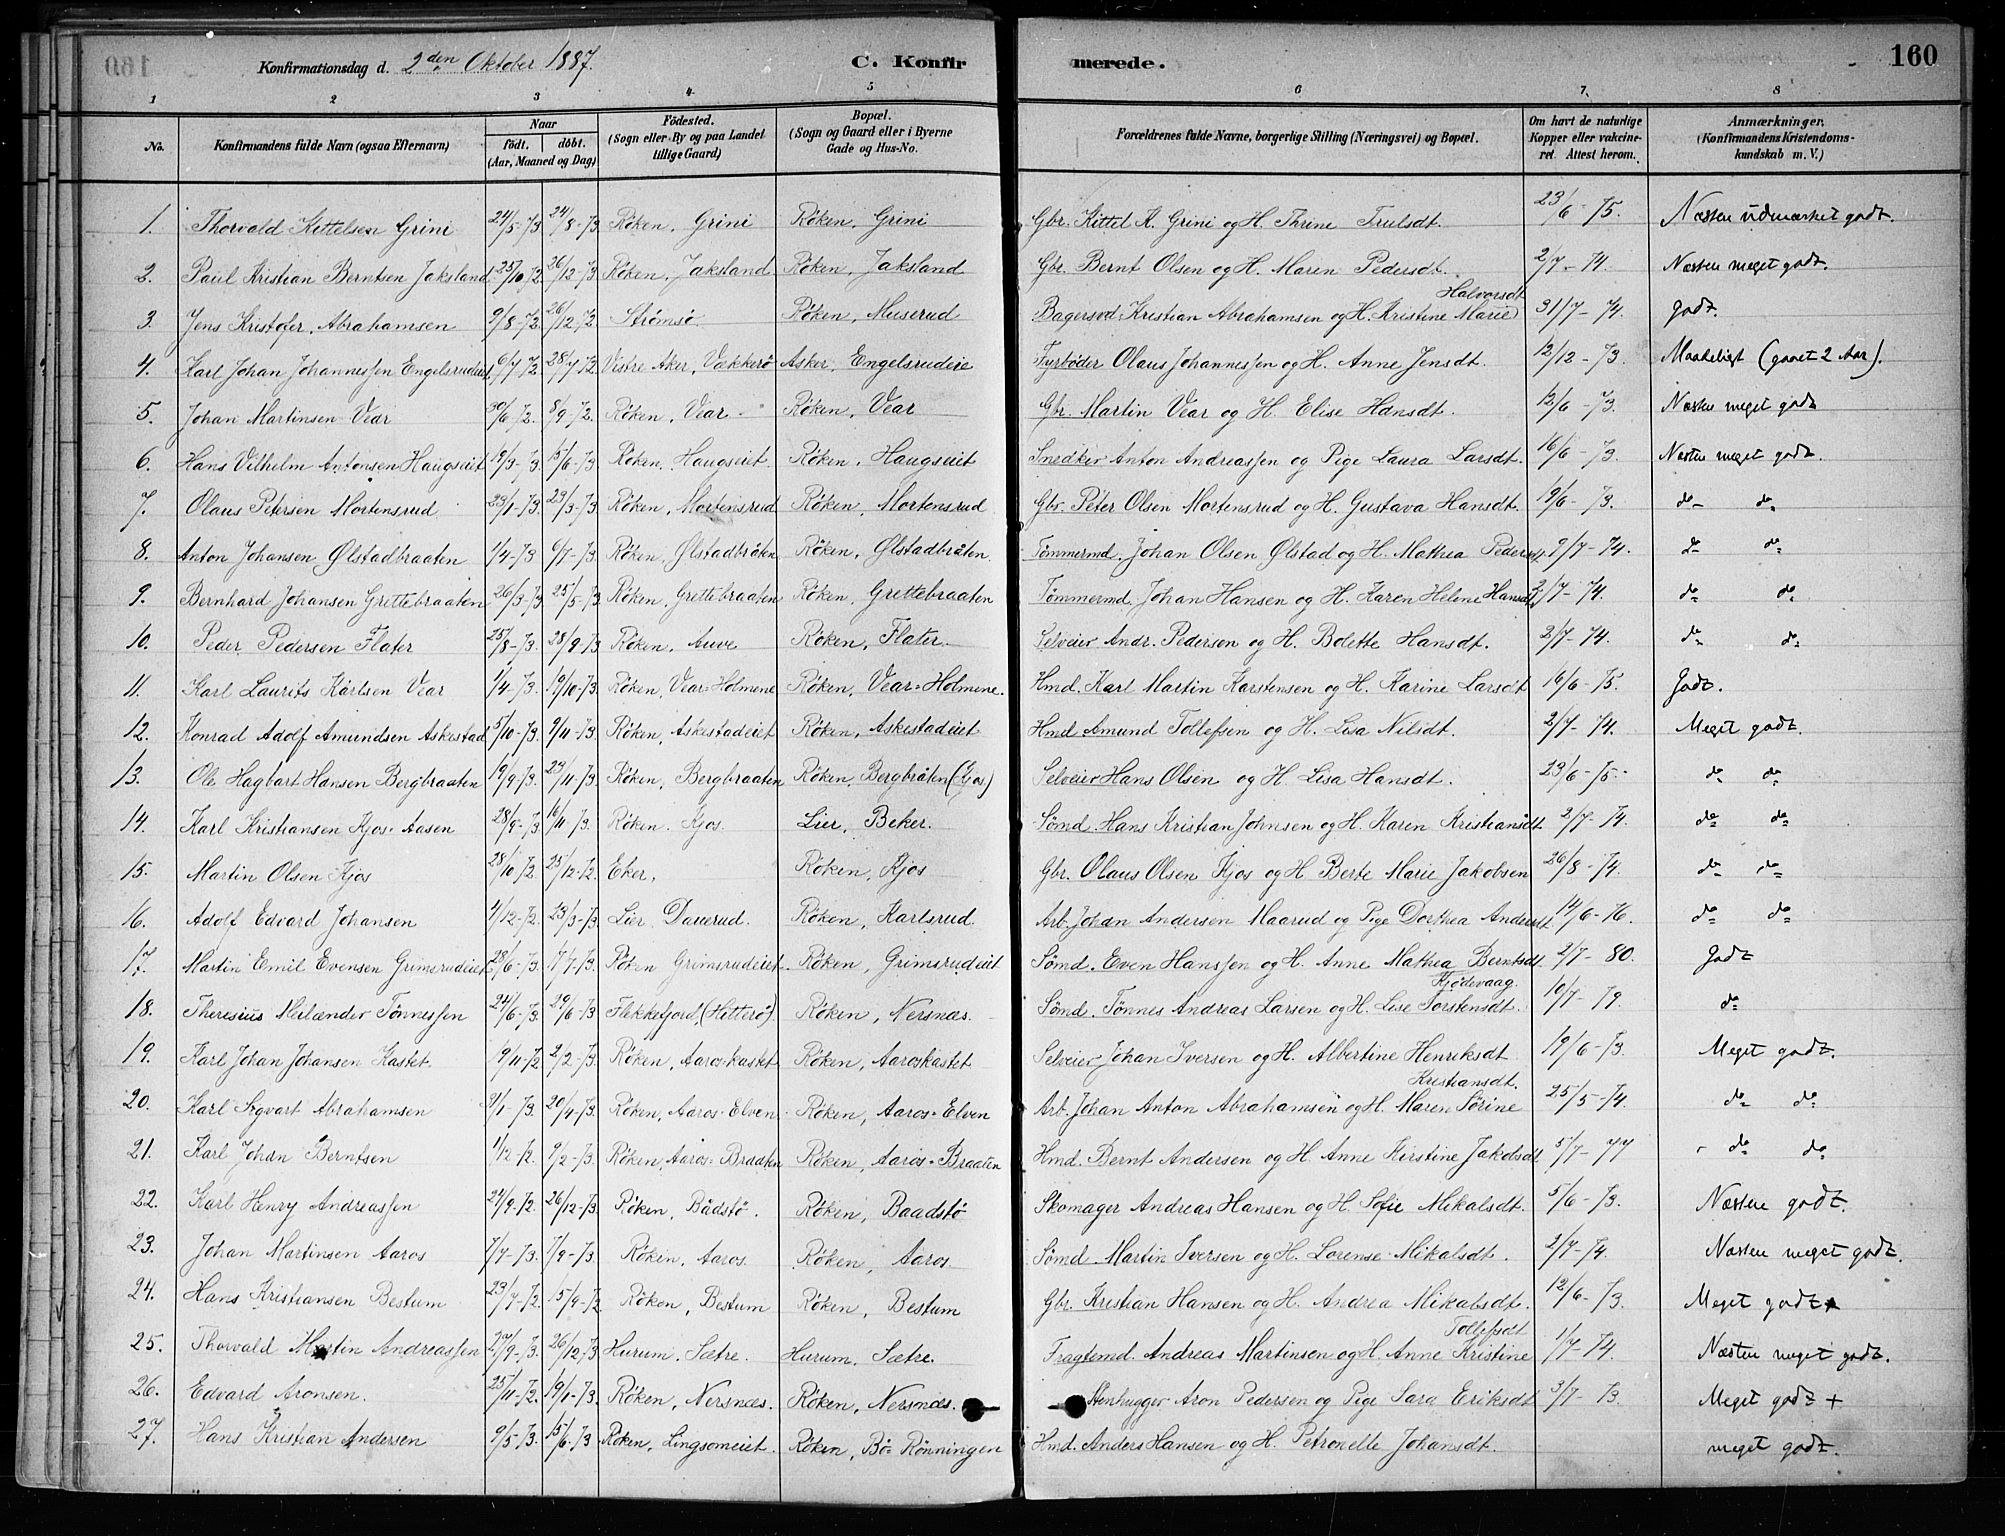 160
Konfirmationsdag d. 2den Oktober 1887. C. Konfir merede. 160
1 2 3 4 5 6 7. 8
No. Konfirmandens fulde Navn (ogsaa Efternavn) Naar födt. döbt. (Aar, Maaned og Dag) Födested. (Sogn eller By og paa Landet tillige Gaard) Bopæl. (Sogn og Gaard eller i Byerne Gade og Hus-No. Forældrenes fulde Navne, borgerlige Stilling (Næringsvei) og Bopæl. Om havt de naturlige Kopper eller vakcineret. Attest herom. Anmærkninger. (Konfirmandens Kristendomskundskab m. V.)
1. Thorvald Kittelsen Grini 24/5-73 24/8-73 Röken, Grini Röken, Grini Gbr. Kittel K. Grini og H. Thrine Trulsdt. 23/6-75. Næsten udmærket godt.
2. Paul Kristian Berntsen Jaksland 25/10 72 26/12-73 Röken, Jaksland Röken, Jaksland Gbr. Bernt Olsen og H. Maren Pedersdt. 2/7-74. Næsten meget godt.
3. Jens Kristofer Abrahamsen 9/8-72 26/12 72 Strömsö Röken, Muserud Bagersvd. Kristian Abrahamsen og H. Kristine Marie Halvorsdt 31/7-74. godt.
4. Karl Johan Johannessen Engelsrudeie 6/7 72 28/7 72 Vestre Aker, Vækkerö Asker, Engelsrudeie Fyrböder Olaus Johannessen og H. Anne Jensdt. 12/12-73. Maadeligt (gaaet 2 Aar).
5. Johan Martinsen Vear 30/6-72. 8/9-72. Röken, Vear Röken, Vear Gbr. Martin Vear og H. Elise Hansdt. 12/6-73. Næsten meget godt
6. Hans Vilhelm Antonsen Haugseiet 19/3-73. 15/6-73. Röken, Haugseiet. Röken, Haugseiet Snedker Anton Andreassen og Pige Laura Larsdt. 16/6-73. Næsten meget godt.
7. Olaus Petersen Mortensrud 23/1-73. 23/3-73 Röken, Mortensrud Röken, Mortensrud Gbr. Peter Olsen Mortensrud og H. Gustava Hansdt. 19/6-73. do do
8. Anton Johansen Ølstadbraaten 1/4-73 6/7-73. Röken, Ølstadbråten Röken, Ølstadbråten. Tömmermd. Johan Olsen Ølstad og H. Mathea Pedersdt. 9/7-74. do do
9. Bernhard Johansen Grettebraaten 26/3-73 25/5-73 Röken, Grettebraaten Röken, Grettebraaten Tömmermd. Johan Hansen og H. Karen Helene Hansdt 2/7-74. do do
10. Peder Pedersen Flater 25/8-73. 28/9-73 Röken, Auve Röken, Flater Selveier Andr. Pedersen og H. Bolette Hansdt. 2/7-74. do do
11. Karl Laurits Karlsen Vear 1/4-73. 19/10-73. Röken, Vear-Holmene Röken, Vear-Holmene. Hmd. Karl Martin Karstensen og H. Karine Larsdt 16/6-75. Godt.
12. Konrad Adolf Amundsen Askestad 5/10-73. 9/11-73. Röken, Askestadeiet Röken, Askestadeiet Hmd. Amund Tollefsen og H. Lisa Nilsdt. 2/7-74. Meget godt.
13. Ole Hagbart Hansen Bergbraaten 19/9-73. 23/11-73. Röken, Bergbraaten Röken, Bergbråten (Kjos) Selveier Hans Olsen og H. Lisa Hansdt. 23/6-75- do do
14. Karl Kristiansen Kjos-Aasen 28/9-73 16/11 73. Röken. Kjos. Lier, Beker. Sömd. Hans Kristian Johnsen og H. Karen Kristiansdt. 2/7-74. do do
15. Martin Olsen Kjos 28/10 72. 25/12-72. Eker. Röken, Kjos Gbr. Olaus Olsen Kjos og H Berte Marie Jakobsen 26/8-74. do do
16. Adolf Edvard Johansen 4/12-72. 23/3-73. Lier Dauerud. Röken, Karlsrud. Arb. Johan Andersen Maarud og Pige Dorthea Andersdt. 14/6-76. do do
17. Martin Emil Evensen Grimsrudeiet 28/6-73. 17/7-73. Röken Grimsrudeiet Röken, Grimsrudeiet Sömd. Even Hanssen og H. Anne Mathea Berntsdt. 2/7-80. Godt
18. Theresius Meilænder Tönnessen 24/6-73. 29/6-73 Flekkefjord, (Hitterö). Röken, Nersnæs. Sömd. Tönnes Andreas Larsen og H. Lise Torstensdt. Kjödevaag. 10/7-79. do
19. Karl Johan Johansen Kastet. 9/11-72 2/2-73. Röken, Aaros-kastet Röken, Aaroskastet Selveier Johan Iversen og H. Albertine Henriksdt. 19/6-73. Meget godt.
20. Karl Sigvart Abrahamsen 9/1-73. 20/4-73. Röken, Aaros-Elven Röken, Aaros-Elven Arb. Johan Anton Abrahamsen og H. Maren Sörine Kristiansdt. 25/5-74. do do
21. Karl Johan Berntsen 1/12 72. 9/2-73. Röken, Aaros-Braaten Röken, Aaros-Braaten Hmd. Bernt Andersen og H. Anne Kirstine Jakobsdt. 5/7-77 do do
22. Karl Henry Andreassen 24/9-72. 26/12-73. Röken, Bådstö. Röken, Baadstö Skomager Andreas Hansen og H. Sofie Mikalsdt. 5/6-73. Næsten godt.
23. Johan Martinsen Aaros 7/7-73. 7/9-73 Röken, Aaros. Röken, Aaros. Sömd. Martin Iversen og H. Lorense Mikalsdt. 2/7-74. Næsten meget godt.
24. Hans Kristiansen Bestum 23/7-72. 15/9-72 Röken, Bestum Röken, Bestum Gbr. Kristian Hansen og H. Andrea Mikalsdt. 12/6-73. Meget godt
25. Thorvald Martin Andreassen 27/9-73. 26/12-73 Hurum. Sætre. Hurum. Sætre. Fragtemd. Andreas Martinsen og H. Anne Kristine Tollefsdt 1/7-74. Næsten meget godt.
26. Edvard Aronsen. 25/11-72. 19/1-73. Röken, Nersnæs. Röken, Nersnæs. Stenhugger Aron Pedersen og Pige Sara Eriksdt 3/7-73. Meget godt +
27. Hans Kristian Andersen 9/5-73. 15/6-73. Röken, Lingsomeiet. Röken, Bö-Rönningen Hmd. Anders Hansen og H. Petronelle Johansdt. meget godt.